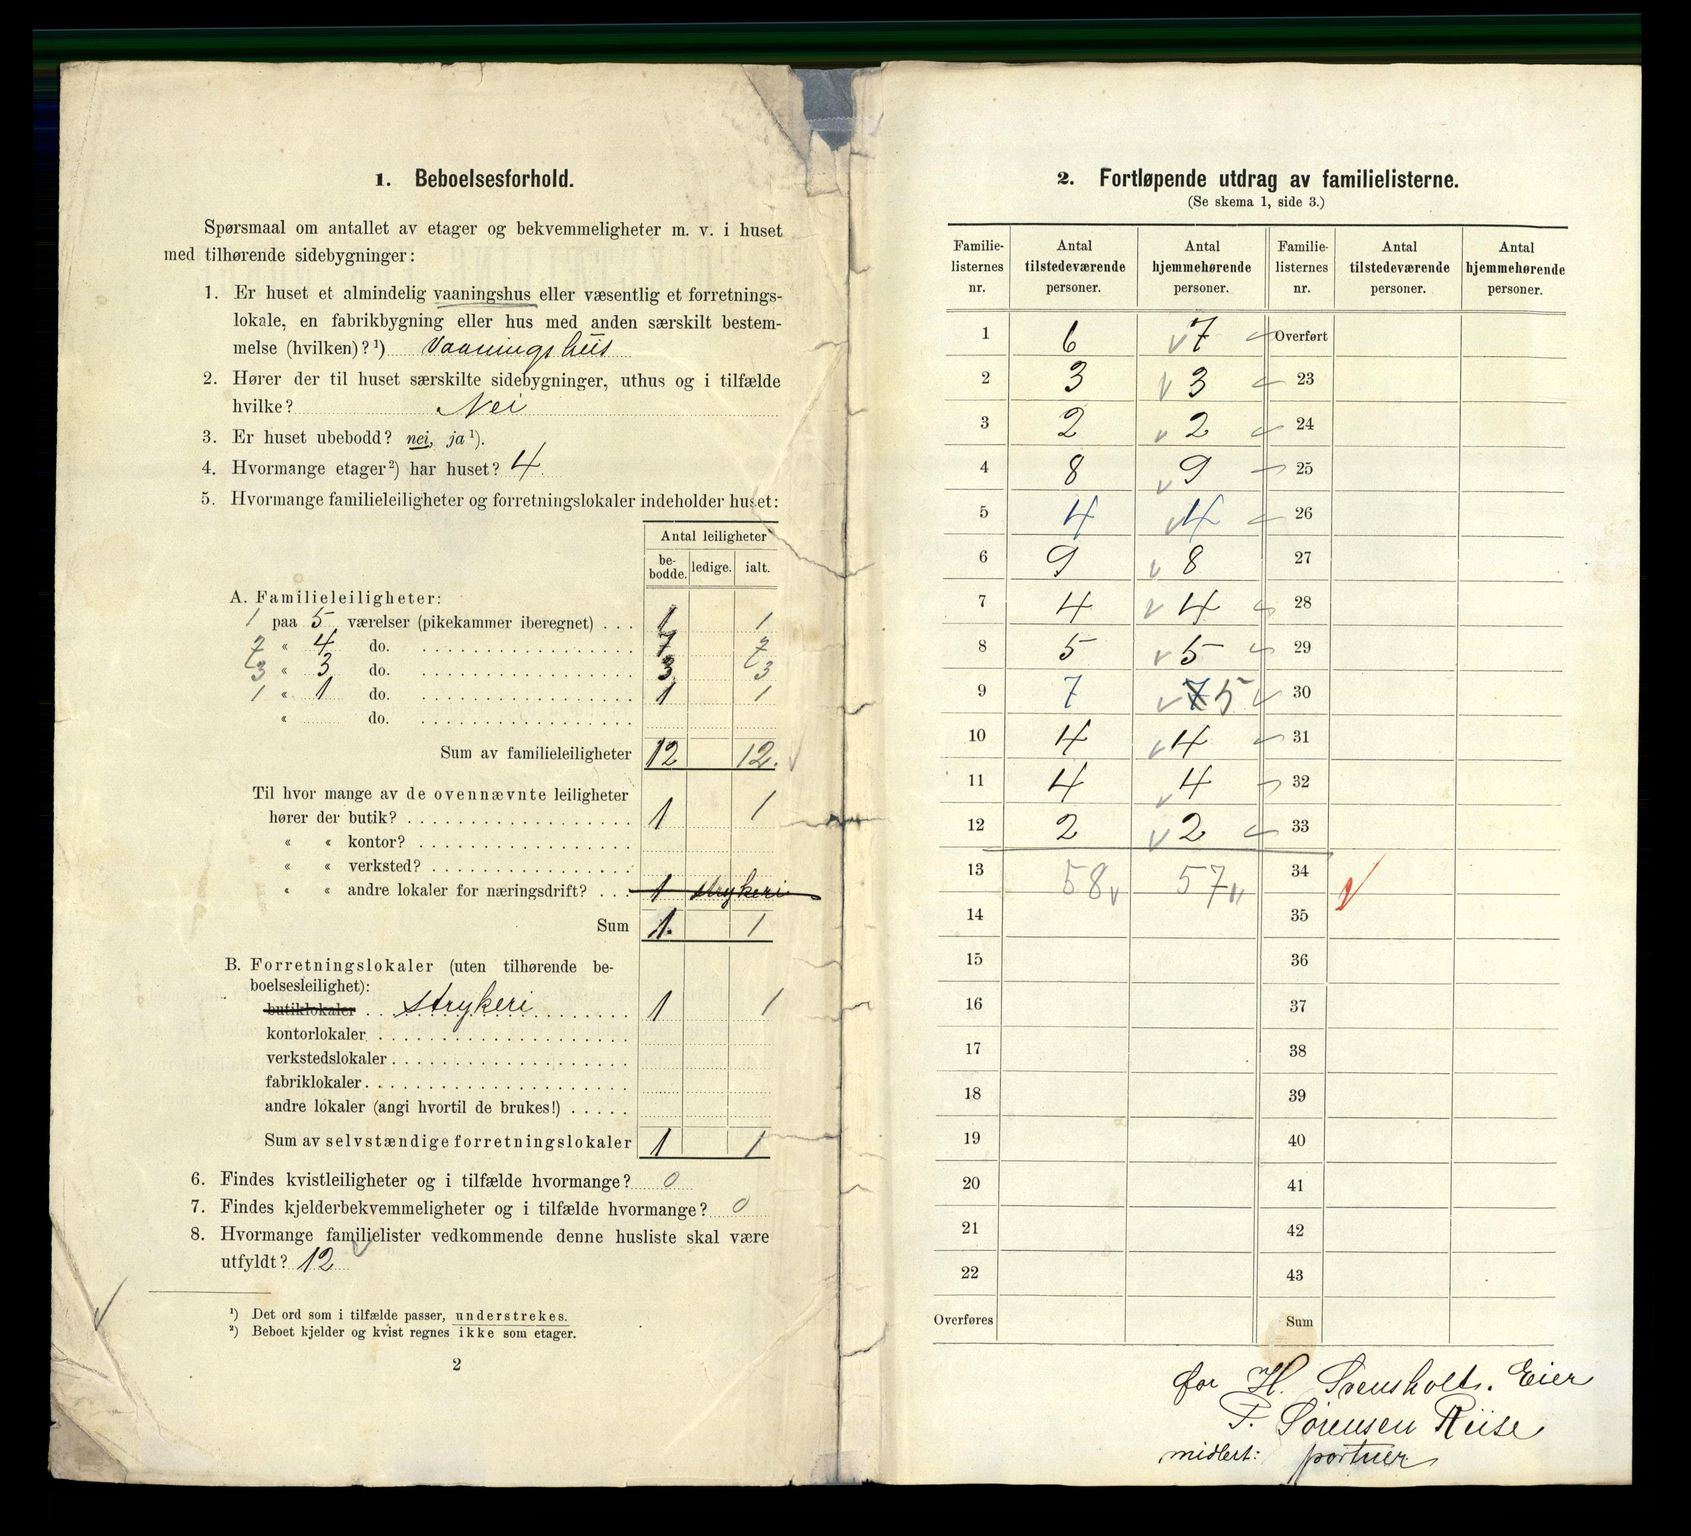 1. Beboelsesforhold.
Spørsmaal om antallet av etager og bekvemmeligheter m. v. i huset
med tilhørende sidebygninger:
1. Er huset et almindelig vaaningshus eller væsentlig et forretnings-
lokale, en fabrikbygning eller hus med anden særskilt bestem-
melse (hvilken)?¹) Vaaningshus
2. Hører der til huset særskilte sidebygninger, uthus og i tilfælde
hvilke? Nei
3. Er huset ubebodd? nei, ja ¹).
4. Hvormange etager²) har huset? 4
5. Hvormange familieleiligheter og forretningslokaler indeholder huset:
Antal leiligheter
be-bodde. ledige. ialt.
A. Familieleiligheter:
1 paa 5 værelser (pikekammer iberegnet) . . . 1 1
7 « 4 do. 7 7
3 « 3 do. 3 3
1 « 1 do. 1 1
« do.
Sum av familieleiligheter 12 12.
Til hvor mange av de ovennævnte leiligheter
hører der butik? 1 1
« « kontor?
« « verksted?
« « andre lokaler for næringsdrift? . . . 1 strykeri
Sum 1. 1
B. Forretningslokaler (uten tilhørende be-
boelsesleilighet):
butiklokaler . . strykeri 1 1
kontorlokaler
verkstedslokaler
fabriklokaler
andre lokaler (angi hvortil de brukes!)
Sum av selvstændige forretningslokaler 1 1
6. Findes kvistleiligheter og i tilfælde hvormange? 0
7. Findes kjelderbekvemmeligheter og i tilfælde hvormange? 0
8. Hvormange familielister vedkommende denne husliste skal være
utfyldt? 12
¹) Det ord som i tilfælde passer, understrekes.
²) Beboet kjelder og kvist regnes ikke som etager.
2
2. Fortløpende utdrag av familielisterne.
(Se skema 1, side 3.)
Familie- Antal Antal Familie- Antal Antal
listernes tilstedeværende hjemmehørende listernes tilstedeværende hjemmehørende
nr. personer. personer. nr. personer. personer.
1 6 7 Overført
2 3 3 23
3 2 2 24
4 8 9 25
5 4 4 26
6 9 8 27
7 4 4 28
8 5 5 29
9 7 7 5 30
10 4 4 31
11 4 4 32
12 2 2 33
13 58 57 34
14 35
15 36
16 37
17 38
18 39
19 40
20 41
21 42
22 43
Overføres Sum
for H. Svensholt. Eier
P. Sørensen Riise
midlert: portner